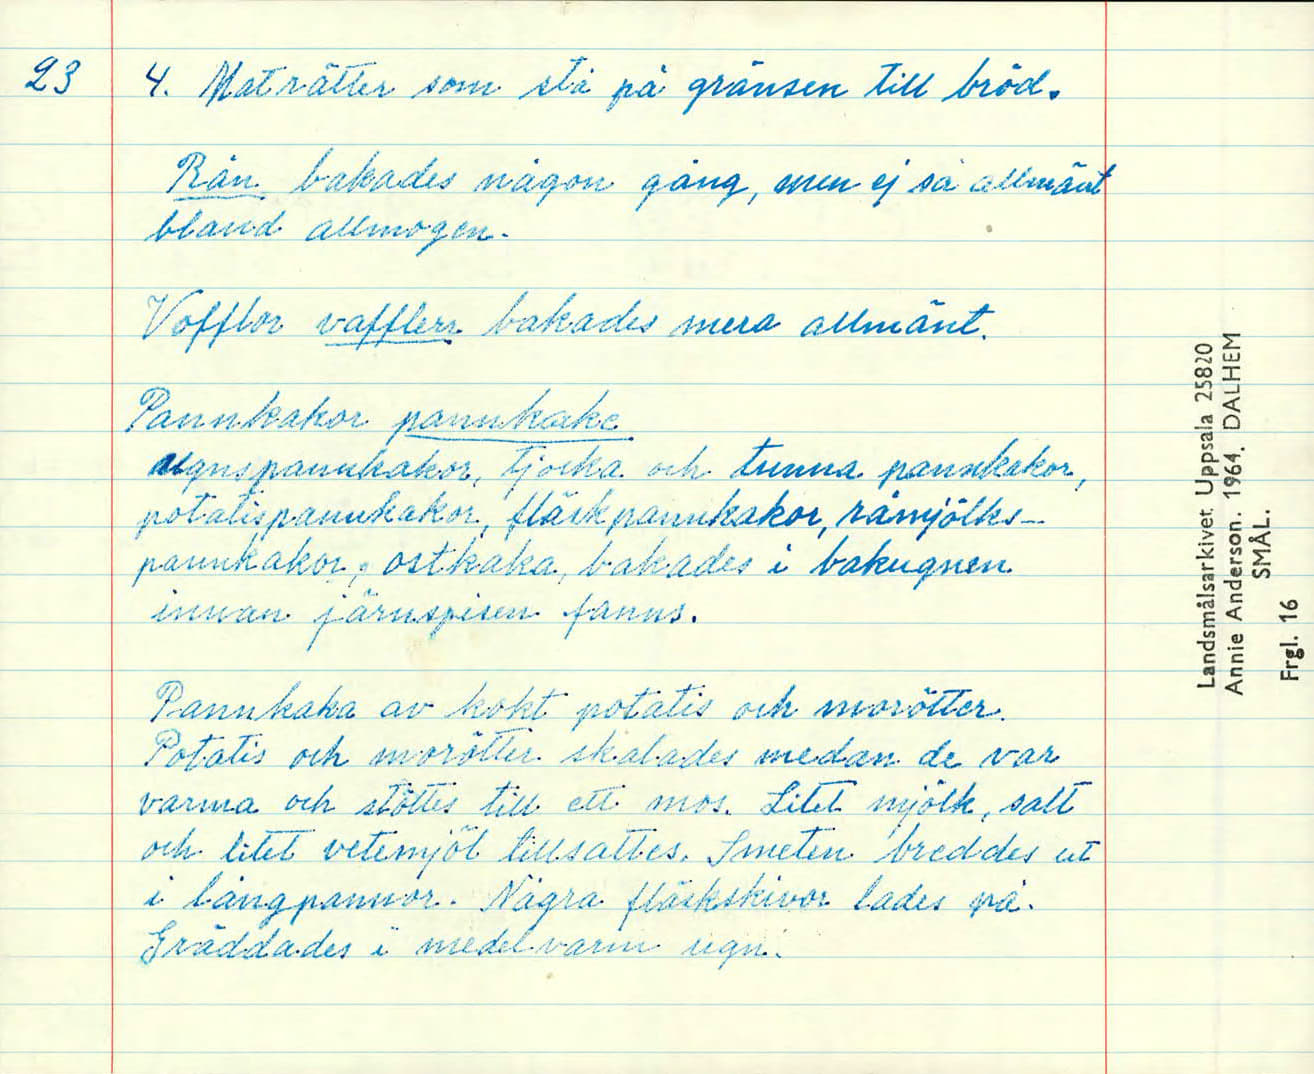 23 4. Maträtter som stå på gränsen till bröd.
Rån bakades någon gång, men ej så allmänt
bland allmogen.
Vofflor vafflerr bakades mera allmänt.
Pannkakor pannkake
ugnspannkakor, tjocka och tunna pannkakor,
potatispannkakor, fläskpannkakor, råmjölks-
pannkakor, ostkaka, bakades i bakugnen
innan järnspisen fanns.
Pannkaka av kokt potatis och morötter.
Potatis och morötter skalades medan de var
varma och stöttes till ett mos. Litet mjölk, salt
och litet vetemjöl tillsattes. Smeten breddes ut
i långpannor. Några fläskskivor lades på.
Gräddades i medelvarm ugn.
Landsmålsarkivet Uppsala 25820
Annie Anderson. 1964. DALHEM
SMÅL.
Frgl. 16